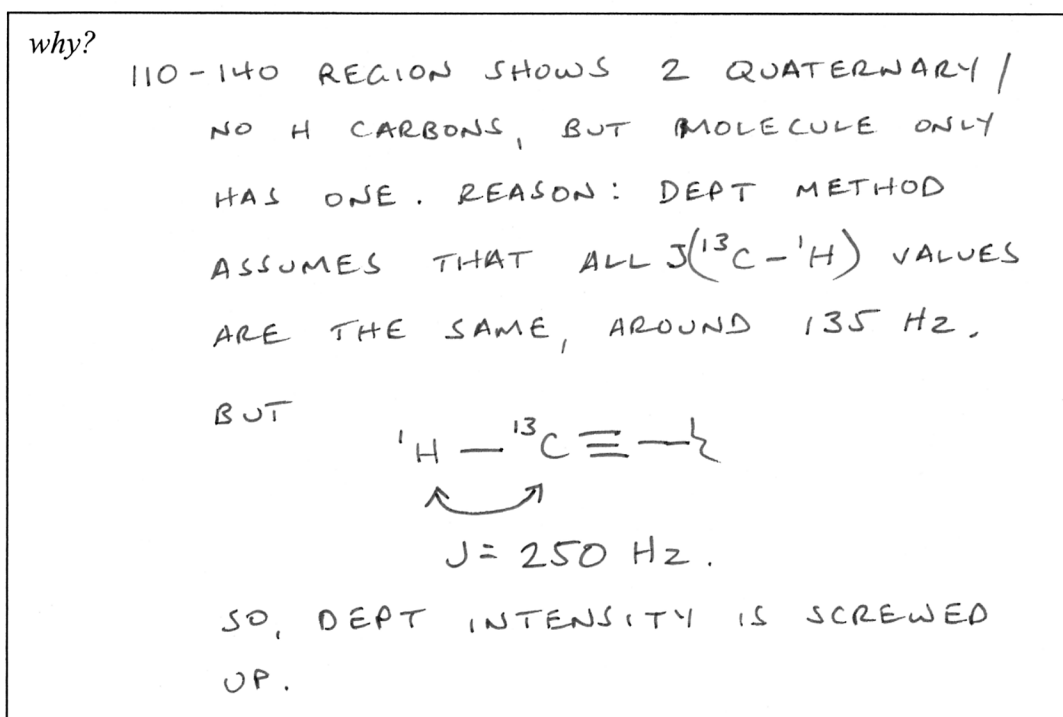 why?
110-140 REGION SHOWS 2 QUATERNARY/
NO H CARBONS, BUT MOLECULE ONLY
HAS ONE. REASON: DEPT METHOD
ASSUMES THAT ALL J(¹³C-¹H) VALUES
ARE THE SAME, AROUND 135 Hz.
BUT
¹H — ¹³C ≡ —
J = 250 Hz.
SO, DEPT INTENSITY IS SCREWED
UP.